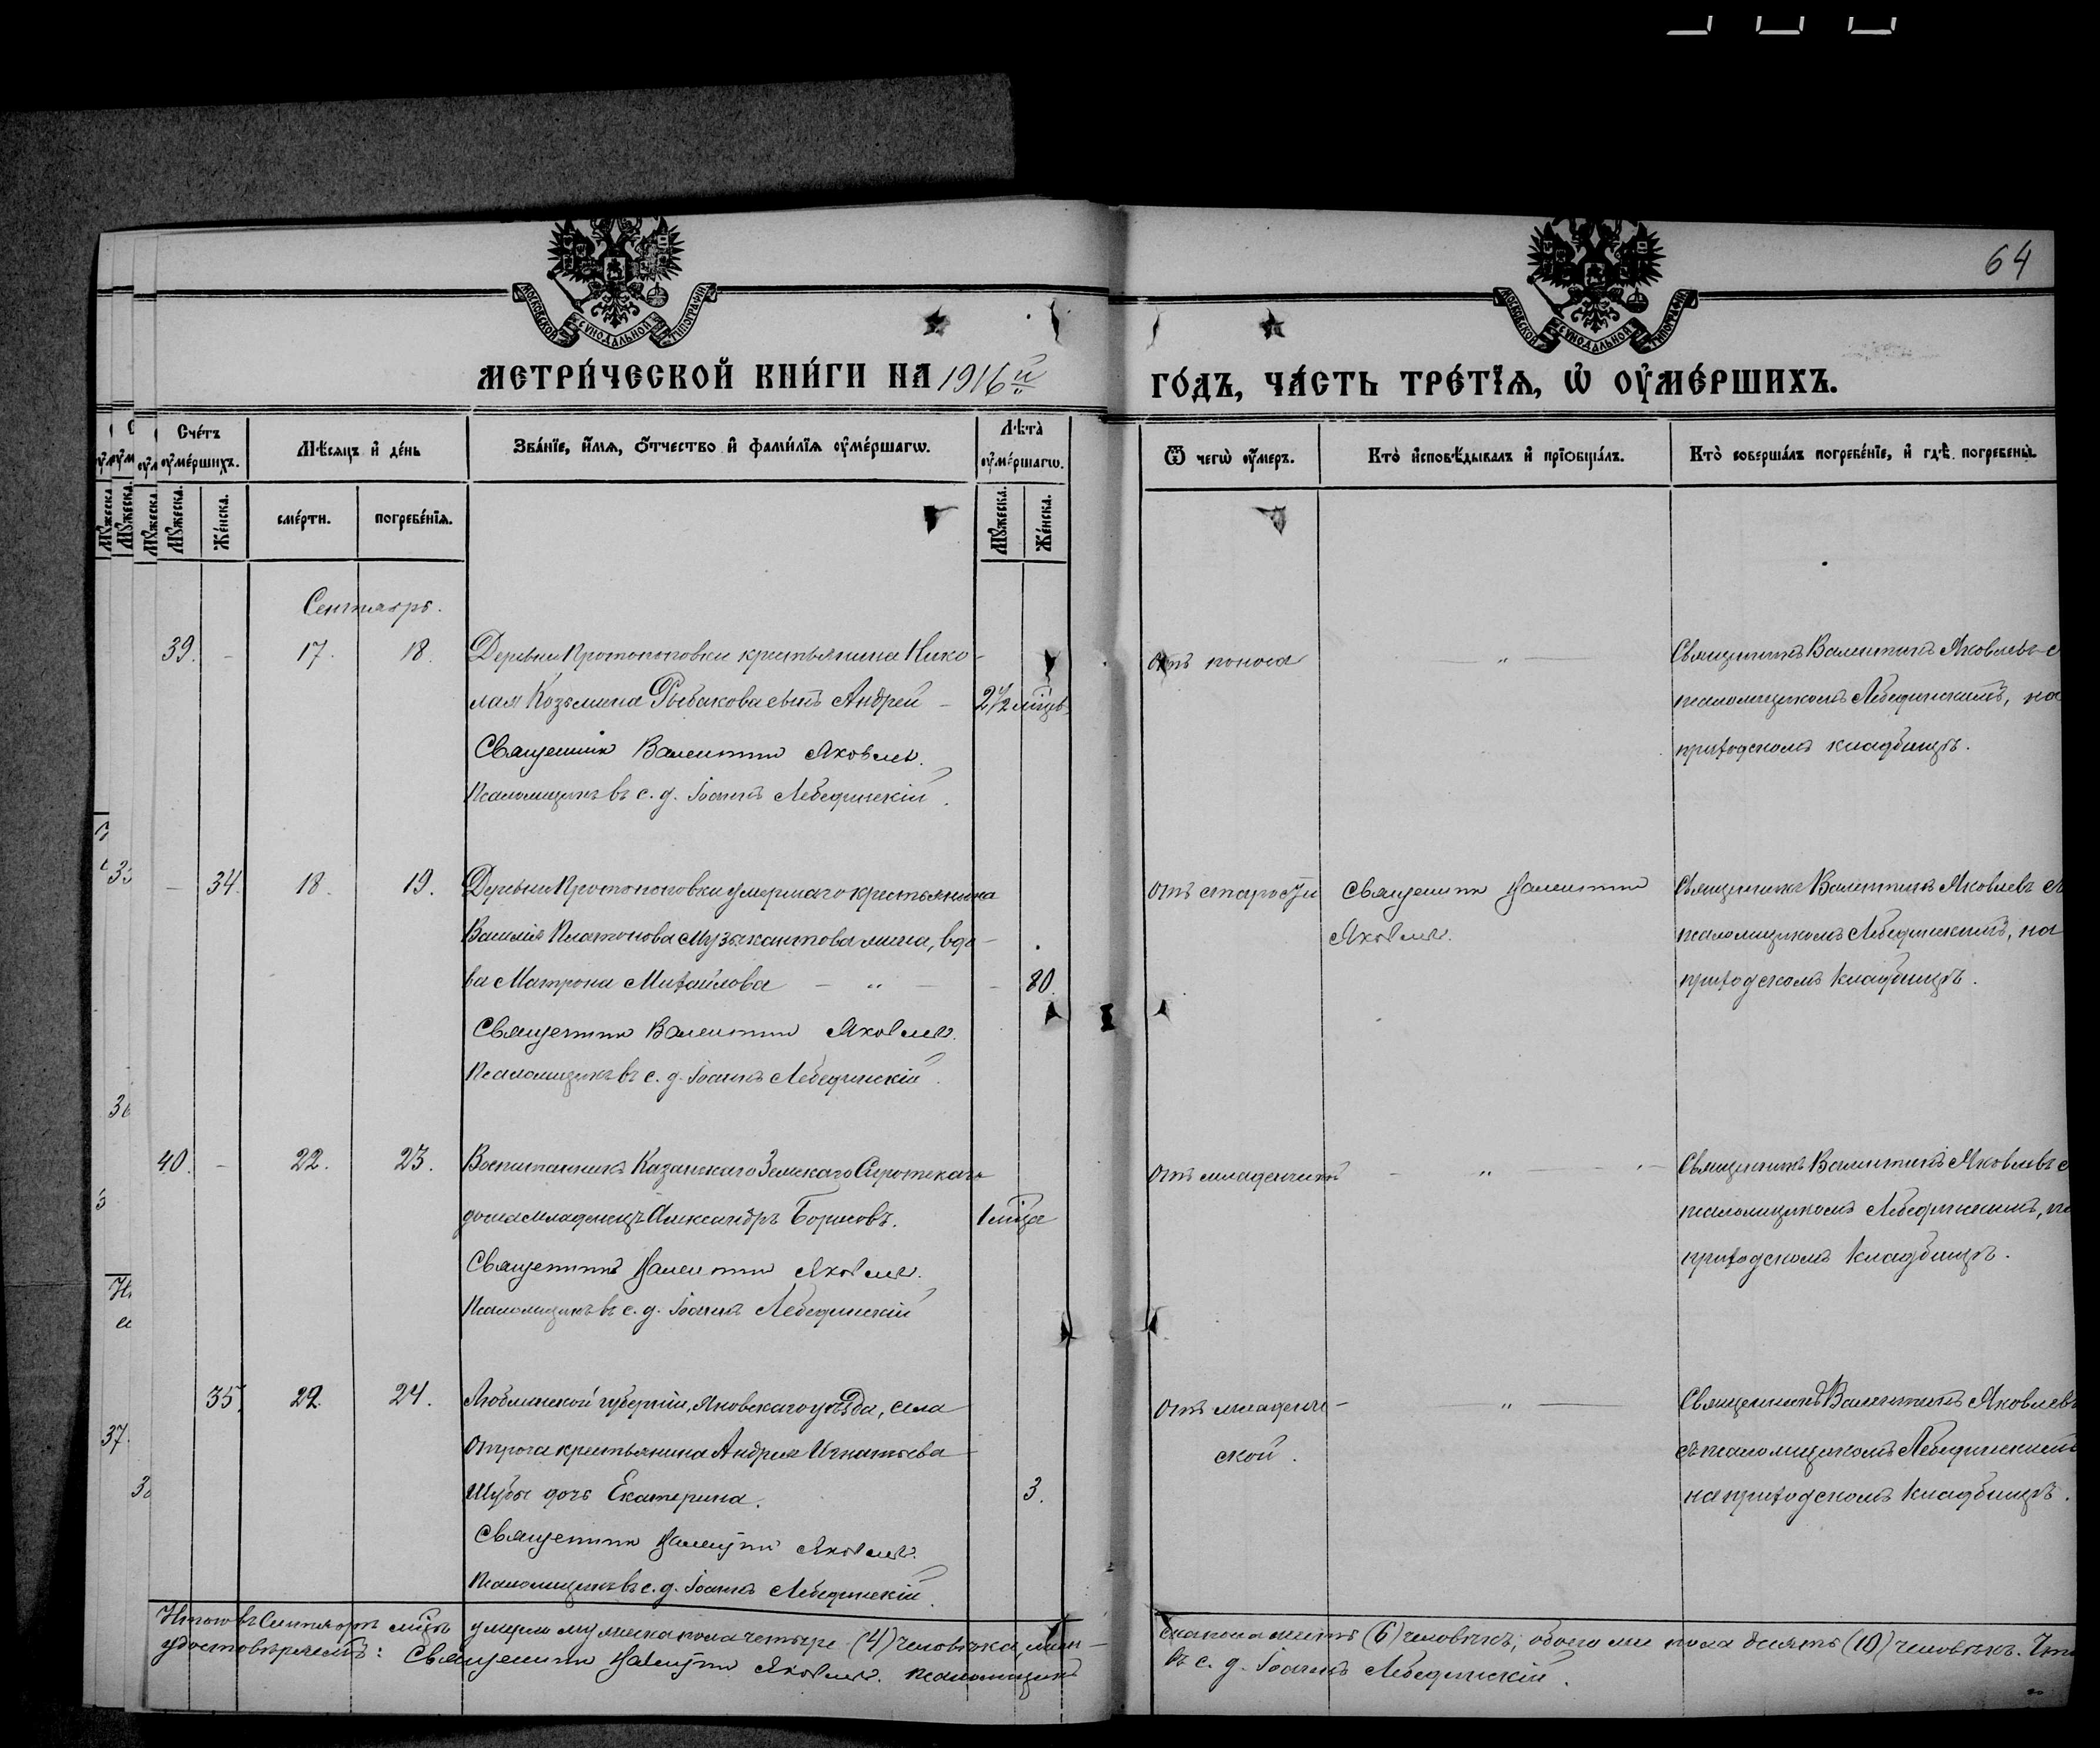 64
МОСКОВСКОЙ СѴНОДАЛЬНОЙ ТИПОГРАФІИ
МОСКОВСКОЙ СѴНОДАЛЬНОЙ ТИПОГРАФІИ
МЕТРИ́ЧЕСКОЙ КНИ́ГИ НА 1916й ГО́ДЪ, ЧА́СТЬ ТРЕ́ТІѦ, Ѽ ОУ҆МЕ́РШИХЪ.
Сче́тъ оу҆ме́ршихъ.
Мѣ́сяцъ и҆ де́нь
Зва́нїе, и҆́мѧ, ѻ҆́тчество и҆ фами́лїѧ оу҆ме́ршагѡ.
Лѣта̀ оу҆ме́ршагѡ.
Ѿ чегѡ̀ оу҆́меръ.
Кто̀ и҆сповѣ́дывалъ и҆ прїобща́лъ.
Кто̀ соверша́лъ погребе́нїе, и҆ гдѣ̀ погребены̀.
Мꙋ́жеска.
Же́нска.
сме́рти.
погребе́нїѧ.
Мꙋ́жеска.
Же́нска.
Сентябрь.
39. - 17. 18. Деревни Протопоповки крестьянина Нико-
лая Козьмина Рыбакова сынъ Андрей - 2 1/2 мѣц.
Священникъ Валентинъ Яковлевъ.
Псаломщикъ въ с. д. Іоаннъ Лебединскій.
Отъ поноса
Священникъ Валентинъ Яковлевъ с
псаломщикомъ Лебединскимъ, на
приходскомъ кладбищѣ.
- 34. 18. 19. Деревни Протопоповки умершаго крестьянина
Василія Платонова Музыкантова жена, вдо-
ва Матрона Михайлова - " - - 80.
Священникъ Валентинъ Яковлевъ.
Псаломщикъ въ с. д. Іоаннъ Лебединскій.
Отъ старости
Священникъ Валентинъ
Яковлевъ.
Священникъ Валентинъ Яковлевъ съ
псаломщикомъ Лебединскимъ, на
приходскомъ кладбищѣ.
40. - 22. 23. Воспитанникъ Казанскаго Земскаго Сиротскаго
дома младенецъ Александръ Борисовъ. 1 мѣца
Священникъ Валентинъ Яковлевъ.
Псаломщикъ въ с. д. Іоаннъ Лебединскій
Отъ младенческ
Священникъ Валентинъ Яковлевъ с
псаломщикомъ Лебединскимъ, на
приходскомъ кладбищѣ.
35. 22. 24. Люблинской губерніи, Яновскаго уѣзда, села
Отроча крестьянина Андрея Игнатьева
Шубы дочь Екатерина. 3.
Священникъ Валентинъ Яковлевъ.
Псаломщикъ въ с. д. Іоаннъ Лебединскій.
Отъ младенче-
ской.
Священникъ Валентинъ Яковлевъ
съ псаломщикомъ Лебединскимъ
на приходскомъ кладбищѣ.
Итого въ Сентябрѣ мѣцѣ умерло мужеска пола четыре (4) человѣка, жен-
ска пола шесть (6) человѣкъ, обоего же пола десять (10) человѣкъ. Что
удостовѣряемъ: Священникъ Валентинъ Яковлевъ. Псаломщикъ
въ с. д. Іоаннъ Лебединскій.